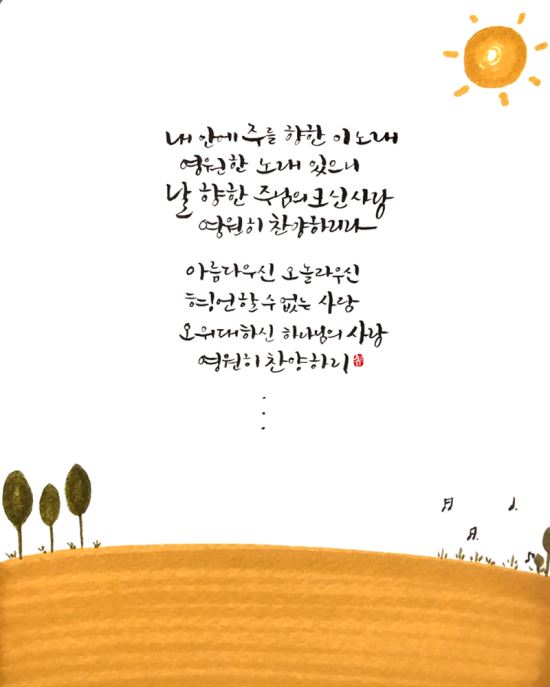 내 안에 주를 향한 이 노래
영원한 노래 있으니
날 향한 주님의 크신 사랑
영원히 찬양하리라
아름다우신 오 놀라우신
형언할 수 없는 사랑
오 위대하신 하나님의 사랑
영원히 찬양하리